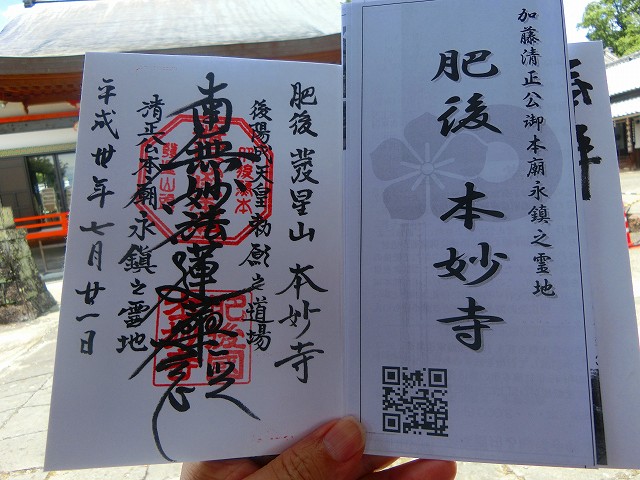 加藤清正公御本廟永鎮之霊地
肥後 本妙寺
肥後 發星山 本妙寺
後陽成天皇勅願之道場
南無妙法蓮華経
清正公本廟永鎮之霊地
平成卅年七月廿一日